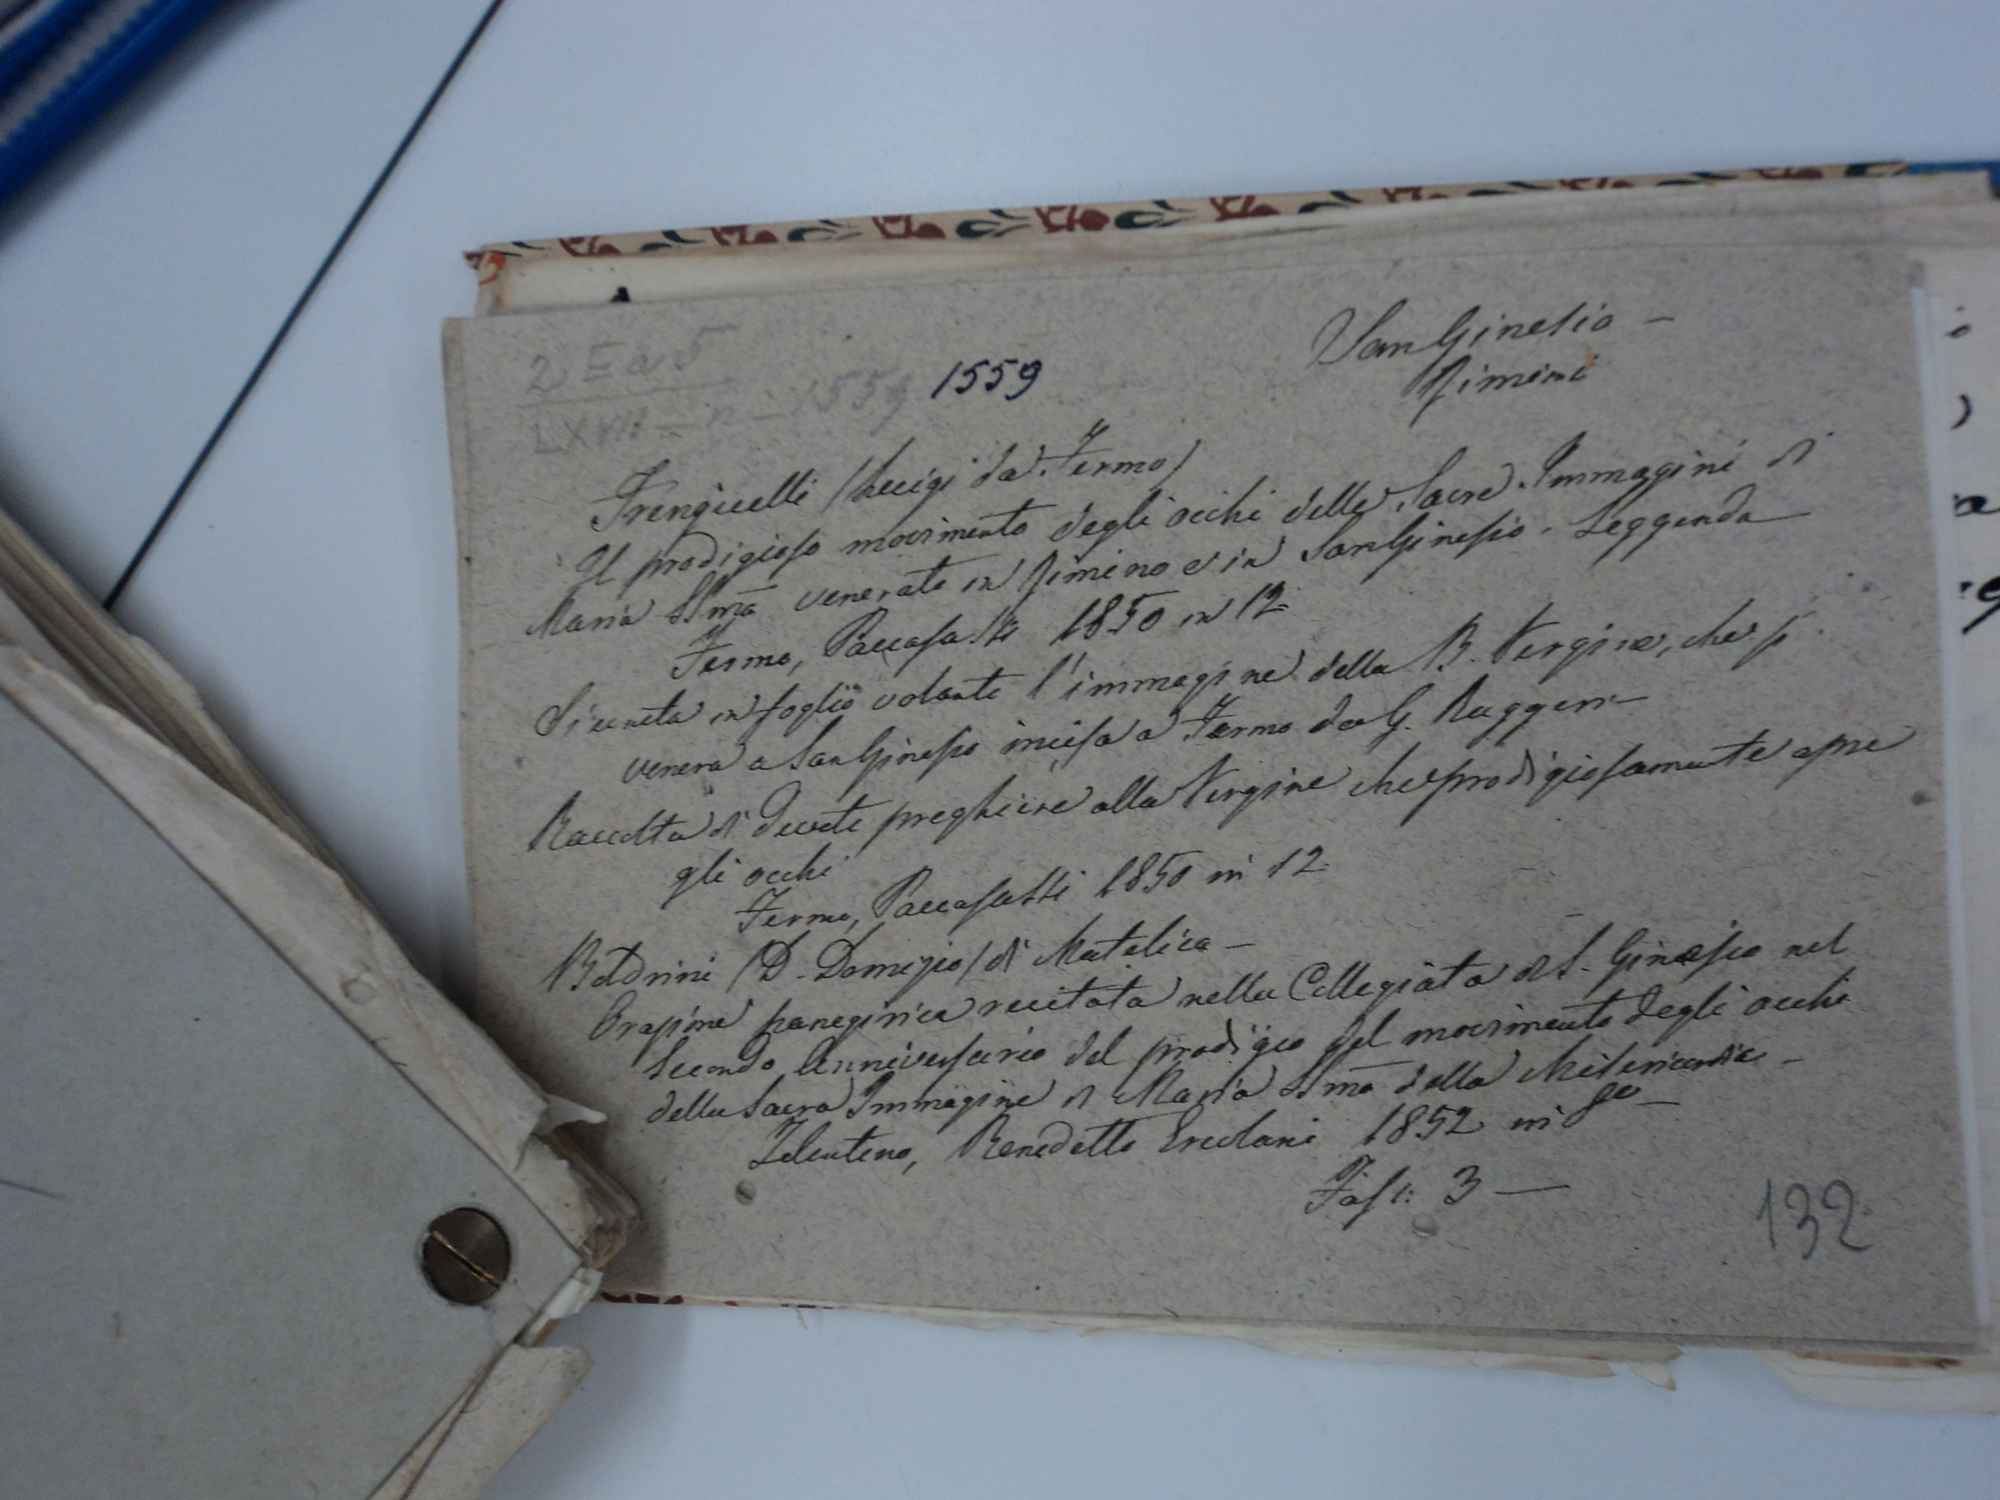 2 E a 5
LXVII - n - 1559 1559
San Ginesio -
Rimini
(Luigi da Fermo)
Il prodigioso movimento degli occhi delle Sacre Immagini di
Maria SSma venerate in Rimino e in San Ginesio. Leggenda
Fermo, Paccasassi 1850 in 12
Si unita in foglio volante l'immagine della B. Vergine, che si
venera a San Ginesio incisa a Fermo da G. Ruggeri -
Raccolta di devote preghiere alla Vergine che prodigiosamente apre
gli occhi
Fermo, Paccasassi 1850 in 12
Baldrini (D. Domizio) di Matelica -
Orazione panegirica recitata nella Collegiata di S. Ginesio nel
secondo Anniversario del prodigio del movimento degli occhi
della Sacra Immagine di Maria SSma della Misericordia -
Tolentino, Benedetto Ercolani 1852 in 8o -
Fasc: 3 -
132